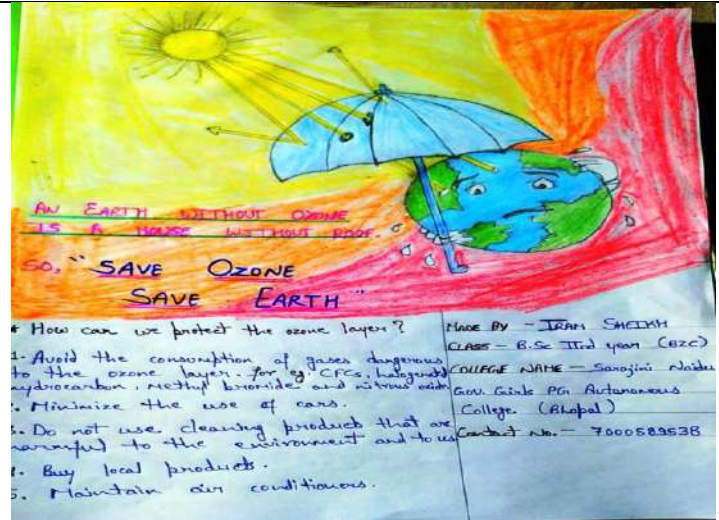 AN EARTH WITHOUT OZONE
IS A HOUSE WITHOUT ROOF.
SO, "SAVE OZONE
SAVE EARTH"
* How can we protect the ozone layer?
1- Avoid the consumption of gases dangerous
to the ozone layer. for eg. CFCs, halogenated
hydrocarbon, methyl bromide and nitrous oxide
. Minimize the use of cars.
. Do not use cleaning products that are
harmful to the environment and to us
. Buy local products.
5. Maintain air conditioners.
MADE BY - IRAM SHEIKH
CLASS - B.Sc IInd year (BZC)
COLLEGE NAME - Sarojini Naidu
Gov. Girls PG. Autonomous
College. (Bhopal)
Contact No. - 7000589538